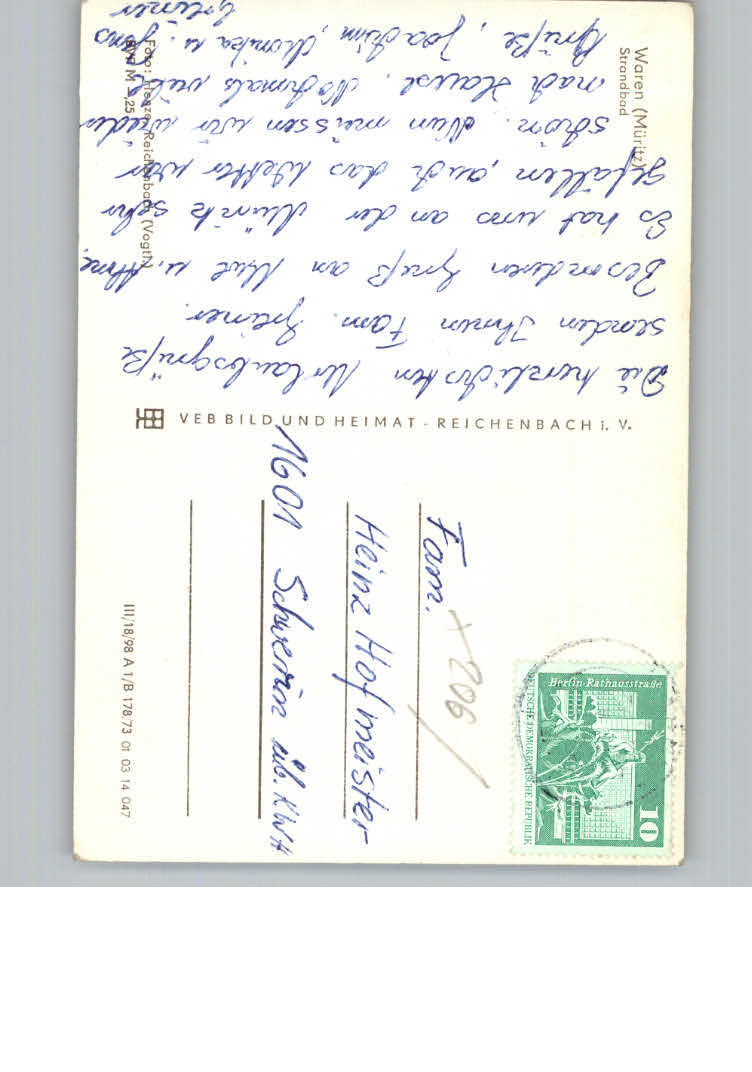 Waren (Müritz)
Strandbad
Die herzlichsten Urlaubsgrüße
senden Ihnen Fam. Greiner.
Besonderen Gruß an u.
Es hat uns an der Müritz sehr
gefallen, auch das Wetter war
schön. Nun müssen wir wieder
nach Hause. Nochmals viele
Grüße, Joachim, Monika u. Jens
Greiner
Foto: Reichenbach (Vogtl)
M -,25
VEB BILD UND HEIMAT - REICHENBACH i. V.
Fam.
Heinz Hofmeister
1601 Schwerin üb. KWH
× 206
III/18/98 A 1/B 178/73 01 03 14 047
Berlin-Rathausstraße
DEUTSCHE DEMOKRATISCHE REPUBLIK
10